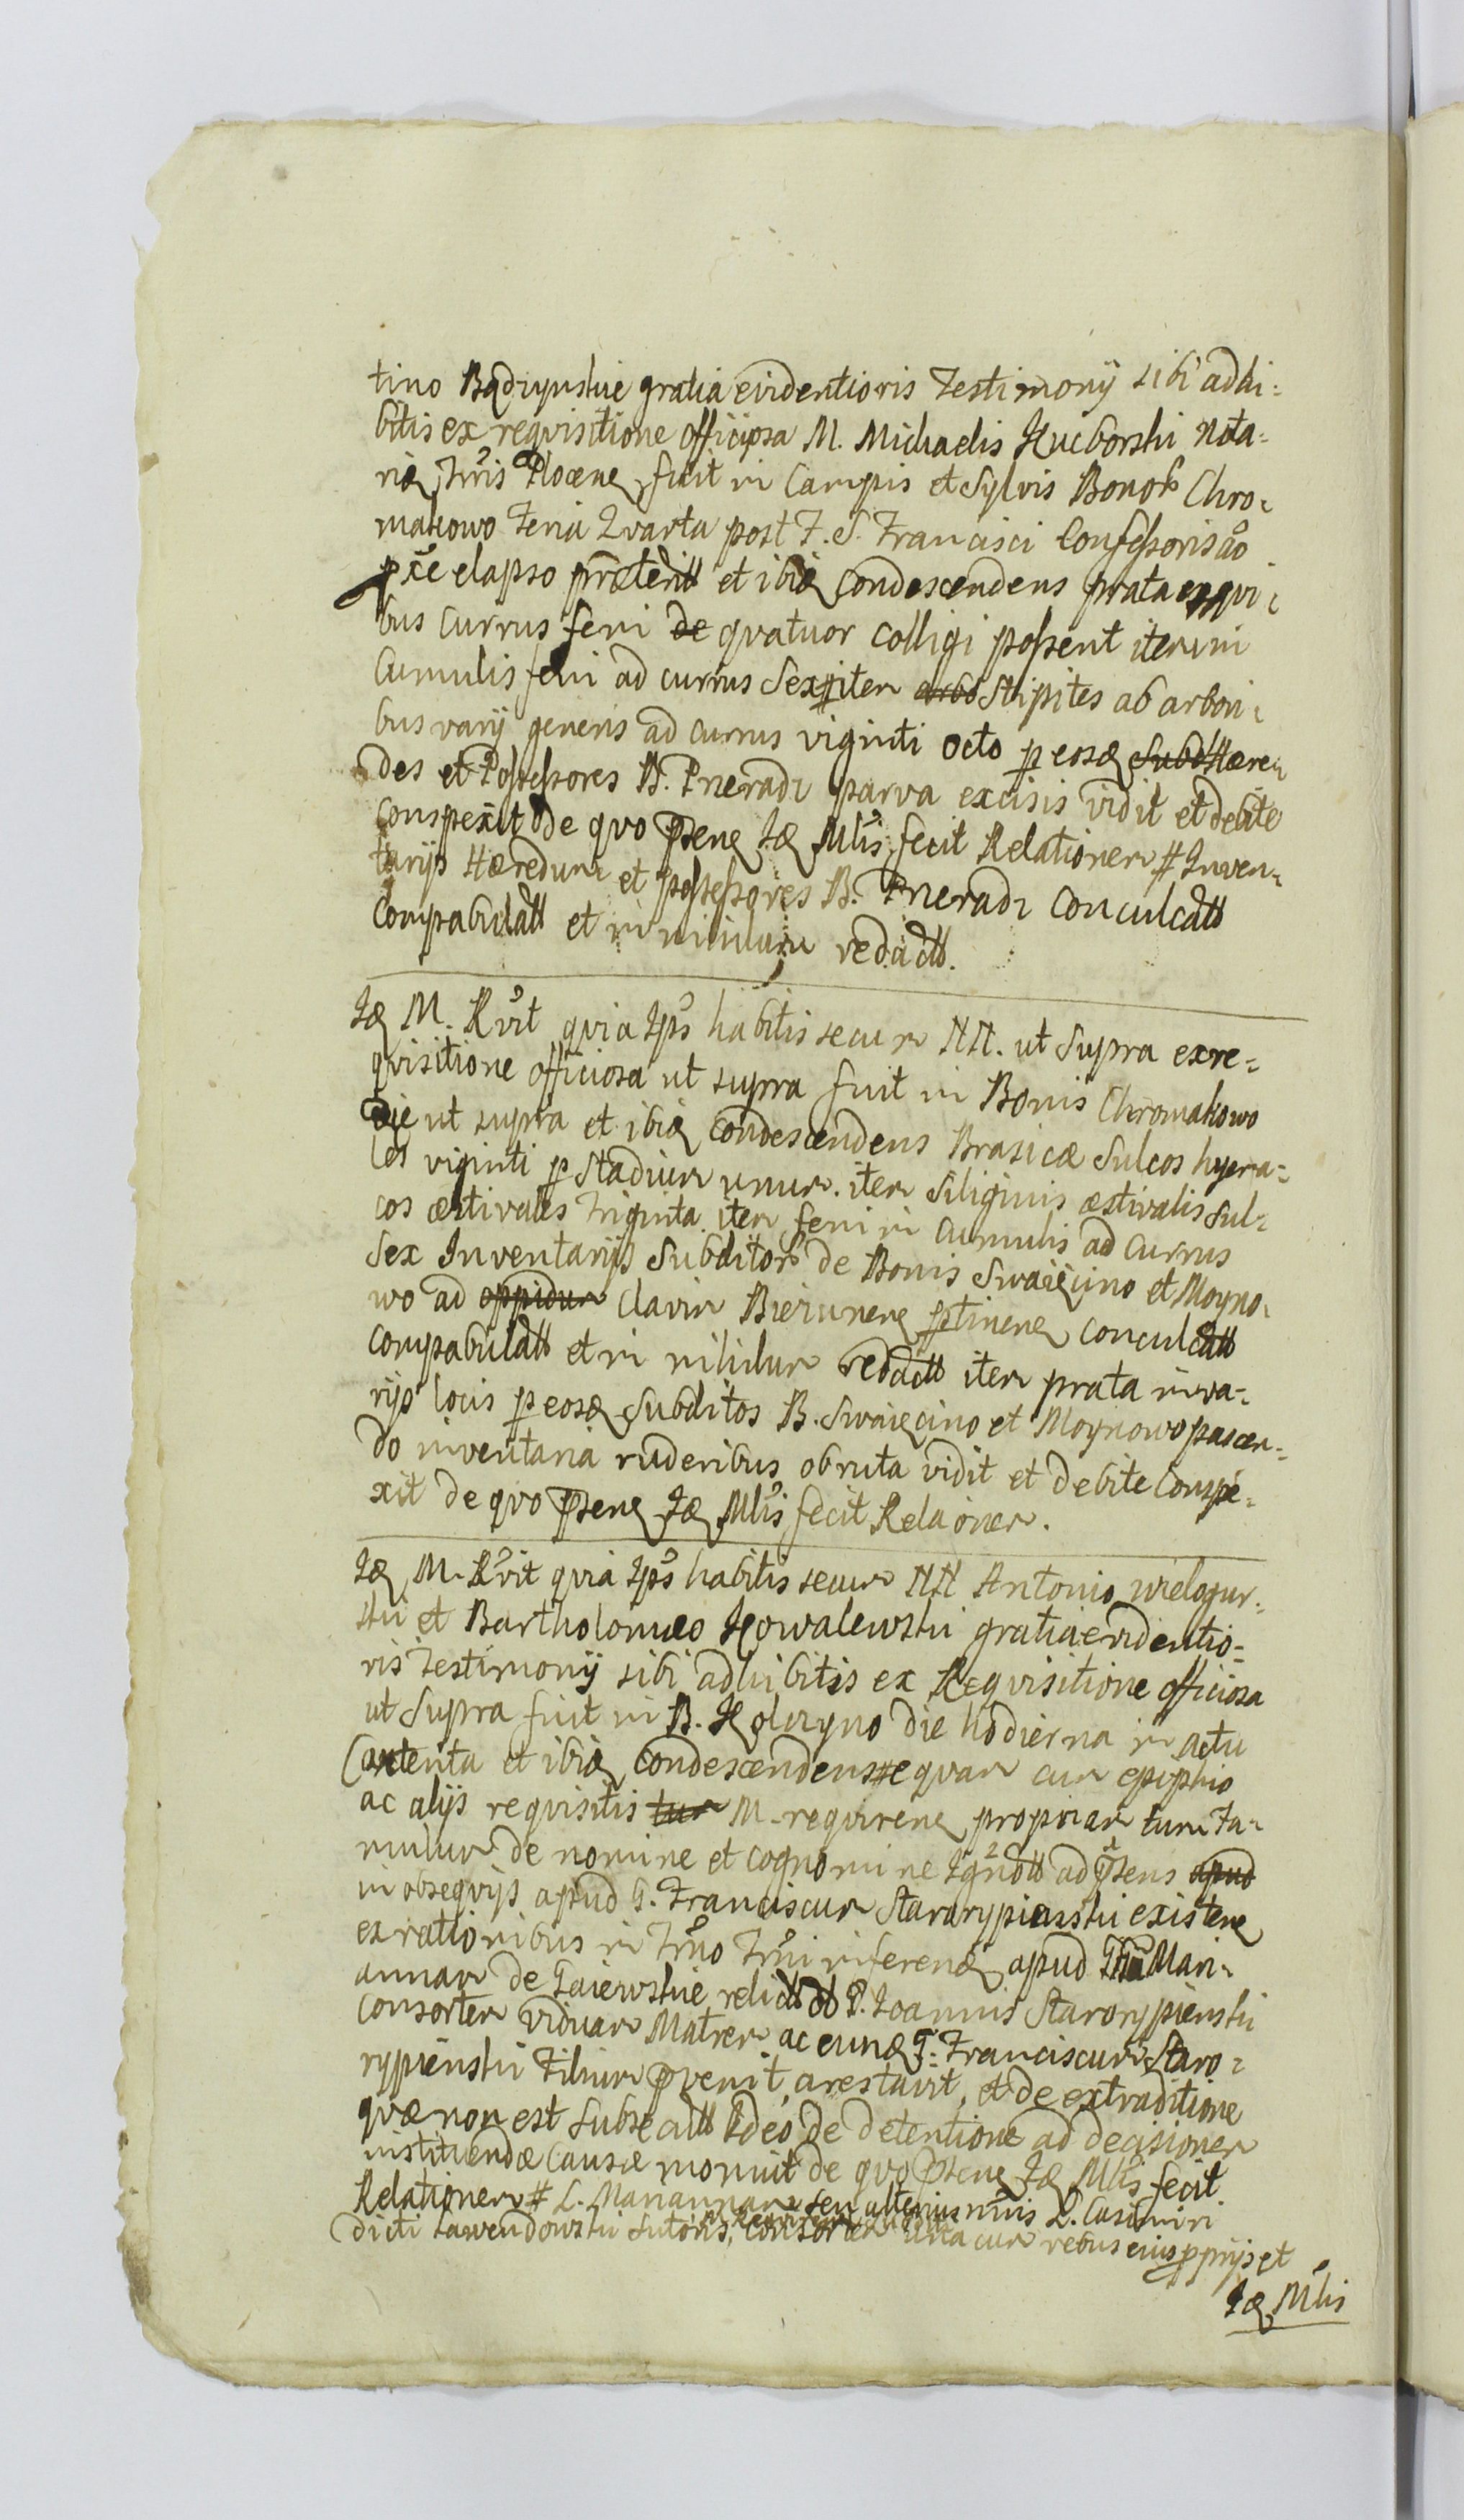 tino Bądzynskie gratia evidentioris Testimonij sibi adhi=
bitis ex requisitione officiosa M. Michaelis Kucborski Nota=
riæ Tris Plocen fuit in Campis et Sylvis Bonor Chro=
makowo Feria Quarta post F. S. Francisci Confessoris ão
elapso præterit et ibiq condescendens prata ex qvi=
bus currus feni de qvatuor colligi possent iterum
Cumulis feni ad currus Sex # iter arbo Stipites ab arbori=
bus varij generis ad currus viginti octo p eosq Subd Hære=
des et Possessores B. Pneradz parva excisis vidit et debite
conspexit de quo psene Jdq Mlis fecit Relationem # Inven=
tarijs Hæredum et possessores B. Pneradz conculcatt
Compabulatt et in nihilum redactt.
Jdq M. Rvit qvia Ips habitis secum NN. ut Supra ex re=
qvisitione officiosa ut supra fuit in Bonis Chromakowo
die ut supra et ibiq condescendens Brasicæ Sulcos hyema=
les viginti p Stadium unum. item Siliginis æstivalis sul=
cos æstivales Triginta item feni in Cumulis ad Currus
Sex Inventarijs Subditor de Bonis Swaięcino et Moyno=
wo ad oppidum Clavim Biezunene ptinene conculcatt
compabulatt et in nihilum redactt item prata in va=
rijs locis p eosq Subditos B. Swaięcino et Moynowo pascen=
do inventaria ruderibus obruta vidit et debite Conspe=
xit de quo psene Jdq Mlis fecit Relaonem.
Jdq M. Rvit qvia Ips habitis secum NN Antonio wielogur=
ski et Bartholomeo Kowalewski gratia evidentio=
ris Testimonij sibi adhibitis ex Reqvisitione officiosa
ut Supra fuit in B. Kolczyno die hodierna in actu
Contenta et ibiq condescendens eqvam cum epiphio
ac alijs reqvisitis tum M. reqvirene propriam tum Fa=
mulum de nomine et cognomine Ignott ad psens apud
in obseqvijs apud G. Franciscum Starorypienski existene
ex rationibus in Trno Trmi inferend apud Mari=
annam de Gaiewskie relictt G. Ioannis Starorypienski
consortem viduam Matrem ac eundq G. Franciscum Staro=
rypienski Filium pvenit, arestavit, et de extraditione
quæ non est Subsecutt Ideo de detentione ad decisionem
instituendæ Causæ monuit de qvo psene Jdq Mlis fecit
Relationem # L. Mariannam seu alterius nnis L. Casimiri
dicti Lawendowski Sutoris, Consortem una cum rebus eius pprijs et
Jdq Mlis